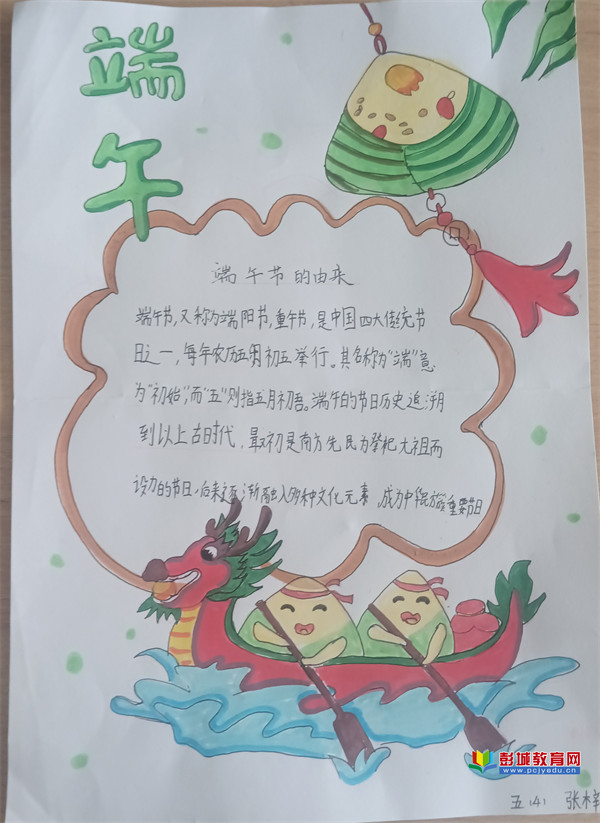 端
午
端午节的由来
端午节,又称为端阳节,重午节,是中国四大传统节
日之一,每年农历五月初五举行。其名称为“端”意
为“初始”,而“五”则指五月初五。端午的节日历史追溯
到以上古时代,最初是南方先民为祭祀龙祖而
设力的节日,后来逐渐融入多种文化元素,成为中华民族重要节日
彭城教育网
www.pcjyedu.cn
五(4) 张梓